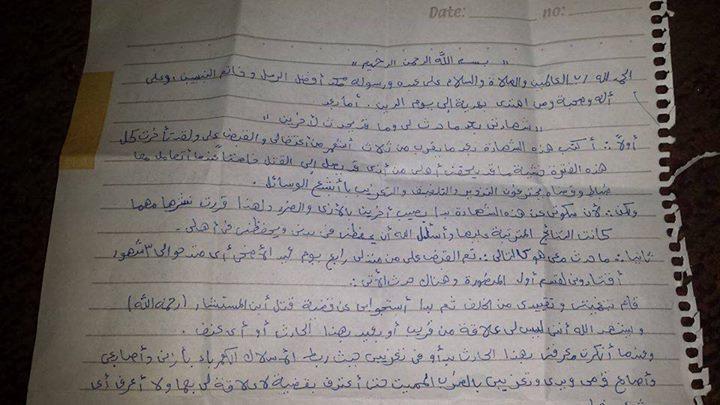 Date: no:
" بسم الله الرحمن الرحيم "
الحمد لله رب العالمين والصلاة والسلام على عبده ورسوله محمد أفضل الرسل وخاتم النبيين وعلى
آله وصحبه ومن اهتدى بهديه إلى يوم الدين . أما بعد
" شهادتى بعد ما حدث لى وما قد يحدث لآخرين "
أولاً : أكتب هذه الشهادة بعد ما يقرب من ثلاث أشهر من اعتقالى والقبض على ولقد تأخرت كل
هذه الفترة خشية ما قد يلحقنى أهلى من أذى قد يصل إلى القتل خاصتاً عندما أتعامل مع
ضباط وقضاه يحترفون التزوير والتلفيق والتعذيب بأبشع الوسائل .
ولكن : لأن سكوتى عن هذه الشهادة بدأ يصيب آخرين بالأذى والضرر ولهذا قررت نشرها مهما
كانت النتائج المترتبة عليها وأسأل الله أن يحفظنى فى دينى ويحفظنى فى أهلى .
ثانيا : ما حدث معى هو كالتالى : تم القبض على من منزلى رابع يوم عيد الأضحى أى منذ حوالى ٣ شهور
اقتادونى لقسم أول المنصورة وهناك حدث الآتى :
قام بتغميتى وتقييدى من الخلف ثم بدأ استجوابى عن قضية قتل ابن المستشار (رحمه الله)
واشهد الله أنى ليس لى علاقة من قريب أو بعيد بهذا الحادث أو أى عنف .
وعندما أنكرت معرفتى بهذا الحادث بدأو فى تعذيبى حيث ربط الأسلاك الكهرباء بأذنى وأصابعى
وأصابع قدمى ويدى وتعذيبى بالضرب المميت حتى أعترف بقضية لا علاقة لى بها ولا أعرف أى